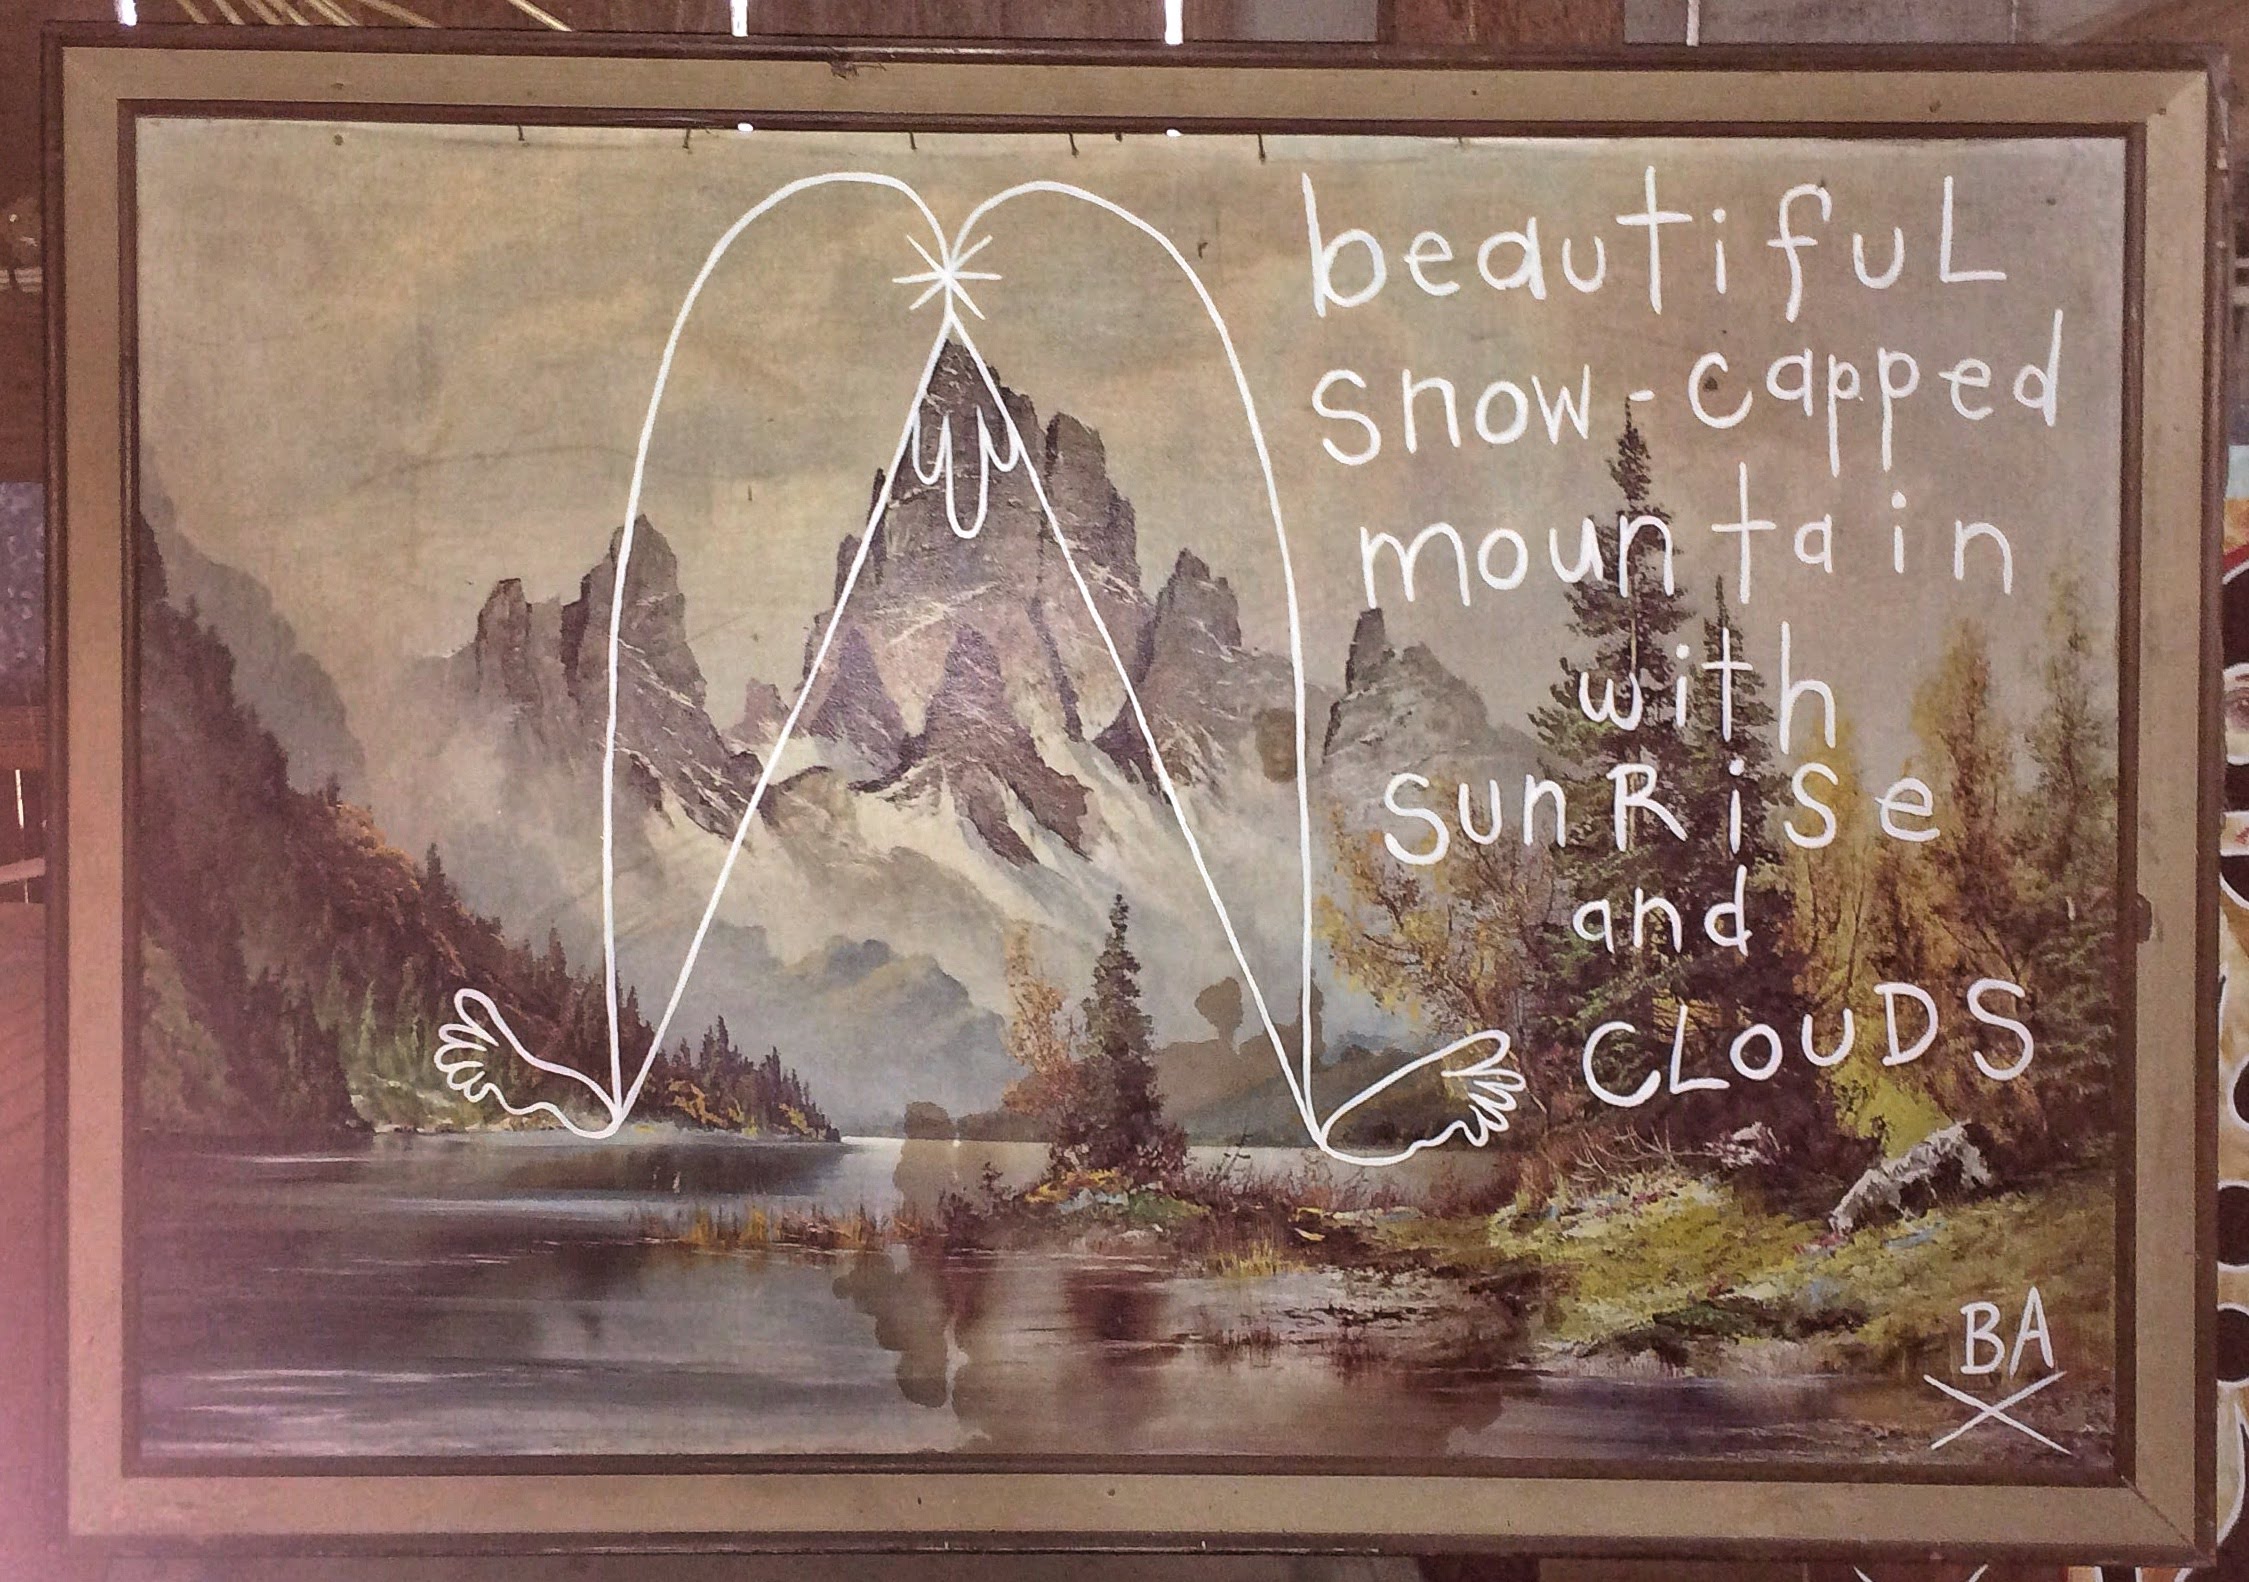 beautifuL
snow-capped
mountain
with
sunRise
and
CLouDS
BA